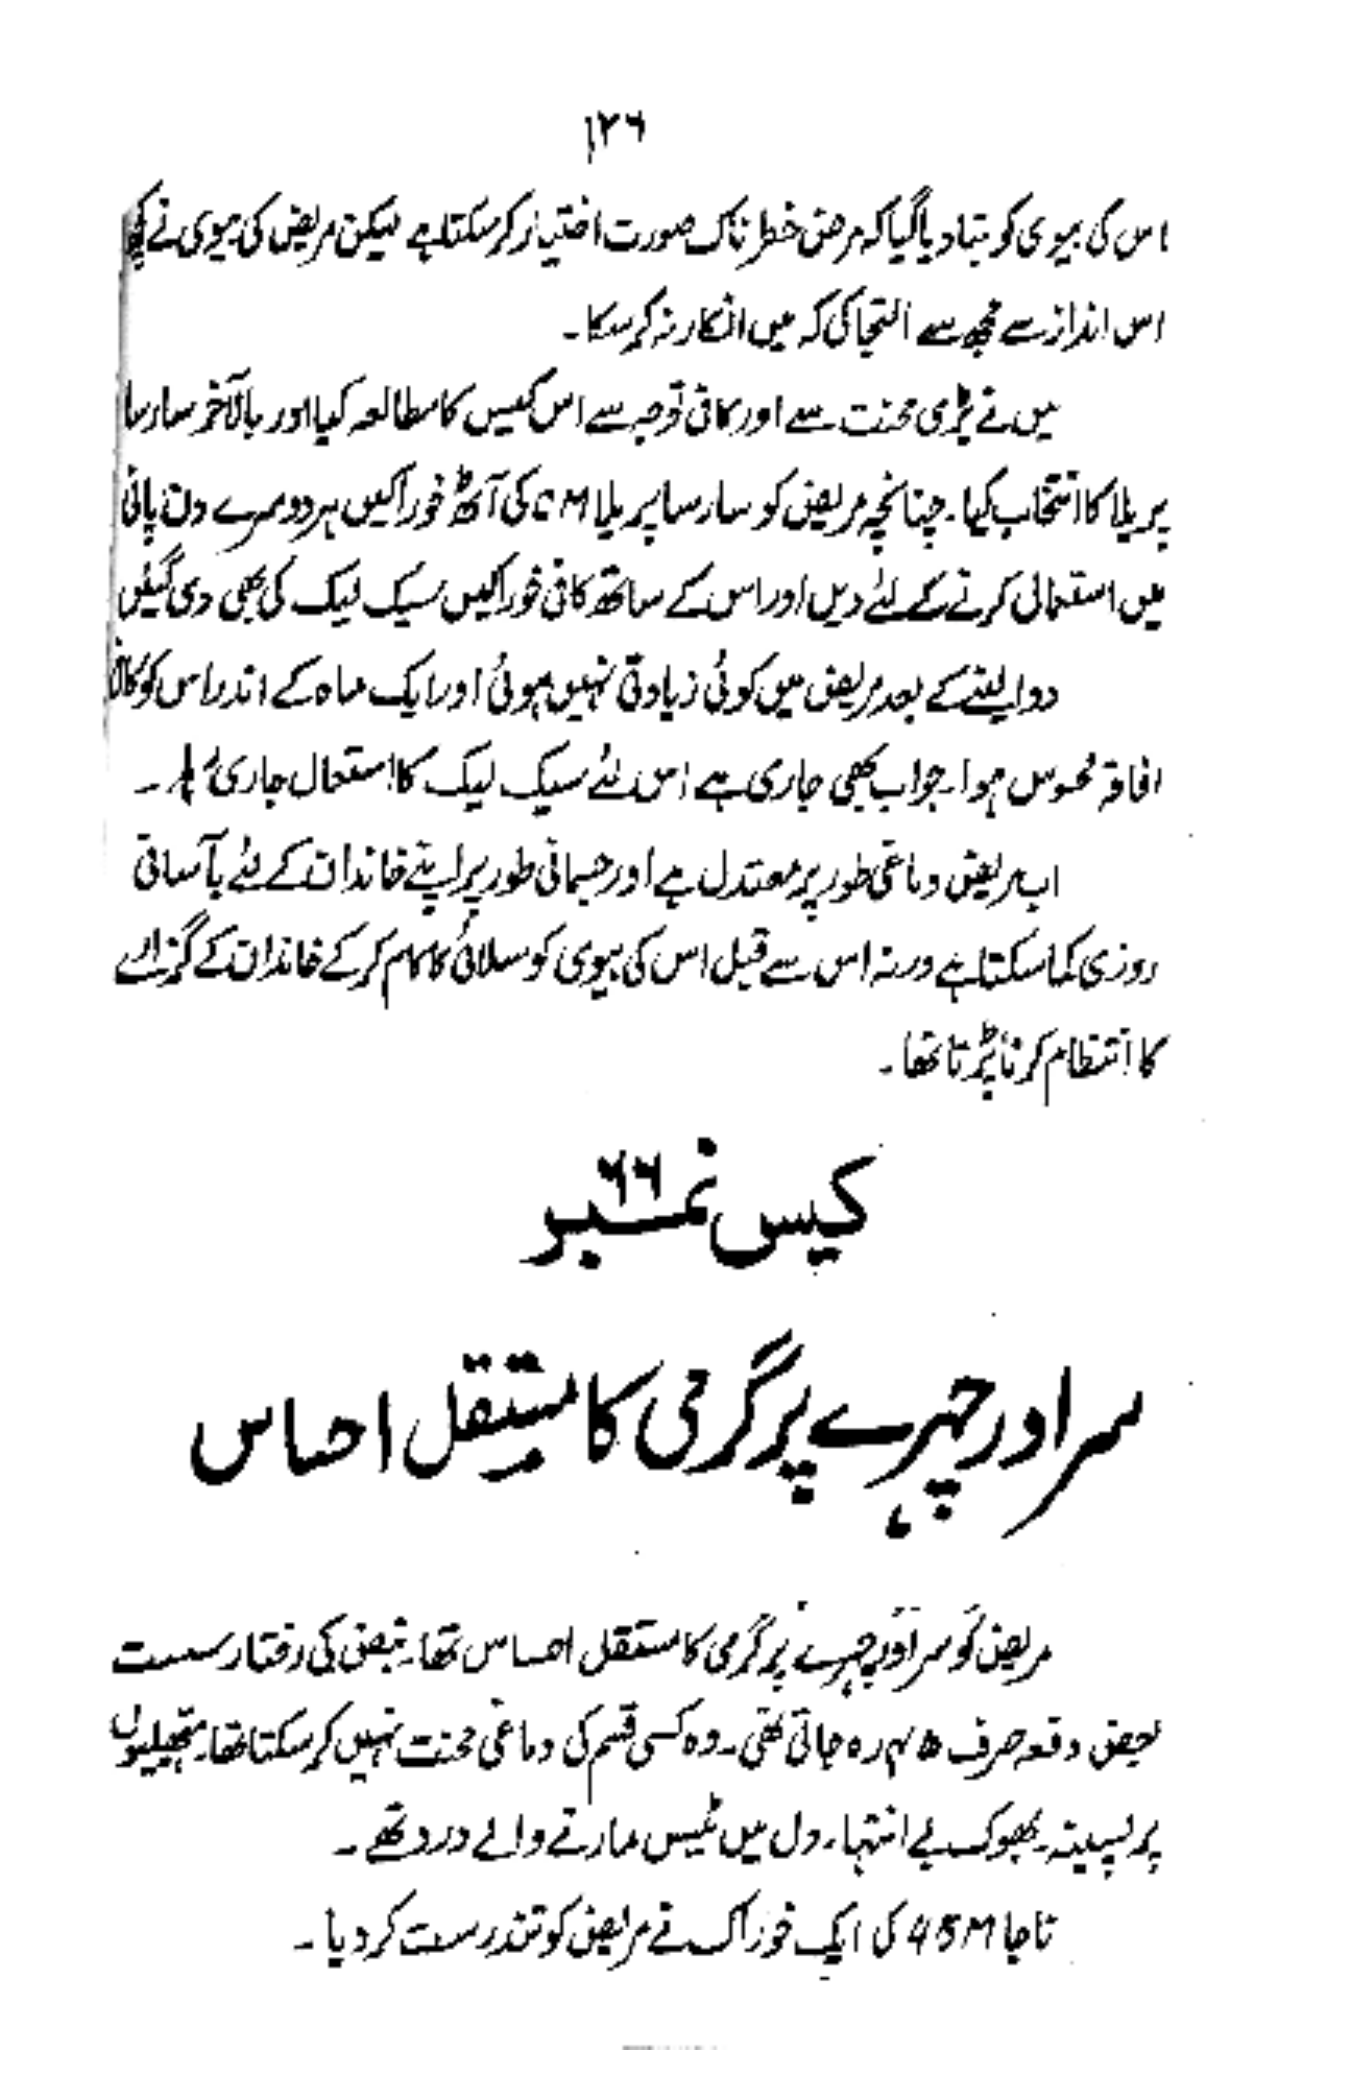 ۱۲۶
اس کی بیوی کو بتا دیا گیا کہ مرض خطرناک صورت اختیار کر سکتا ہے لیکن مریض کی بیوی نے کچھ
اس انداز سے مجھ سے التجا کی کہ میں انکار نہ کر سکا۔
میں نے بڑی محنت سے اور کافی توجہ سے اس کیس کا مطالعہ کیا اور بالآخر سارسا
پریلا کا انتخاب کیا۔ چنانچہ مریض کو سارسا پریلا CM کی آٹھ خوراکیں ہر دوسرے دن پانی
میں استعمال کرنے کے لئے دیں اور اس کے ساتھ کافی خوراکیں سیک لیک کی بھی دی گئیں
دوا لینے کے بعد مریض میں کوئی زیادتی نہیں ہوئی اور ایک ماہ کے اندر اس کو کافی
افاقہ محسوس ہوا۔ جو اب بھی جاری ہے اس لئے سیک لیک کا استعمال جاری ۔
اب مریض دماغی طور پر معتدل ہے اور جسمانی طور پر اپنے خاندان کے لئے بآسانی
روزی کما سکتا ہے ورنہ اس سے قبل اس کی بیوی کو سلائی کا کام کر کے خاندان کے گزارے
کا انتظام کرنا پڑتا تھا۔
کیس نمبر ۶۶
سر اور چہرے پر گرمی کا مستقل احساس
مریض کو سر اور چہرے پر گرمی کا مستقل احساس تھا۔ نبض کی رفتار سست
بعض دفعہ صرف ۴۵ رہ جاتی تھی۔ وہ کسی قسم کی دماغی محنت نہیں کر سکتا تھا۔ ہتھیلیوں
پر پسینہ۔ بھوک بے انتہا۔ دل میں ٹیس مارنے والے درد تھے۔
ناجا 45M کی ایک خوراک نے مریض کو تندرست کر دیا۔